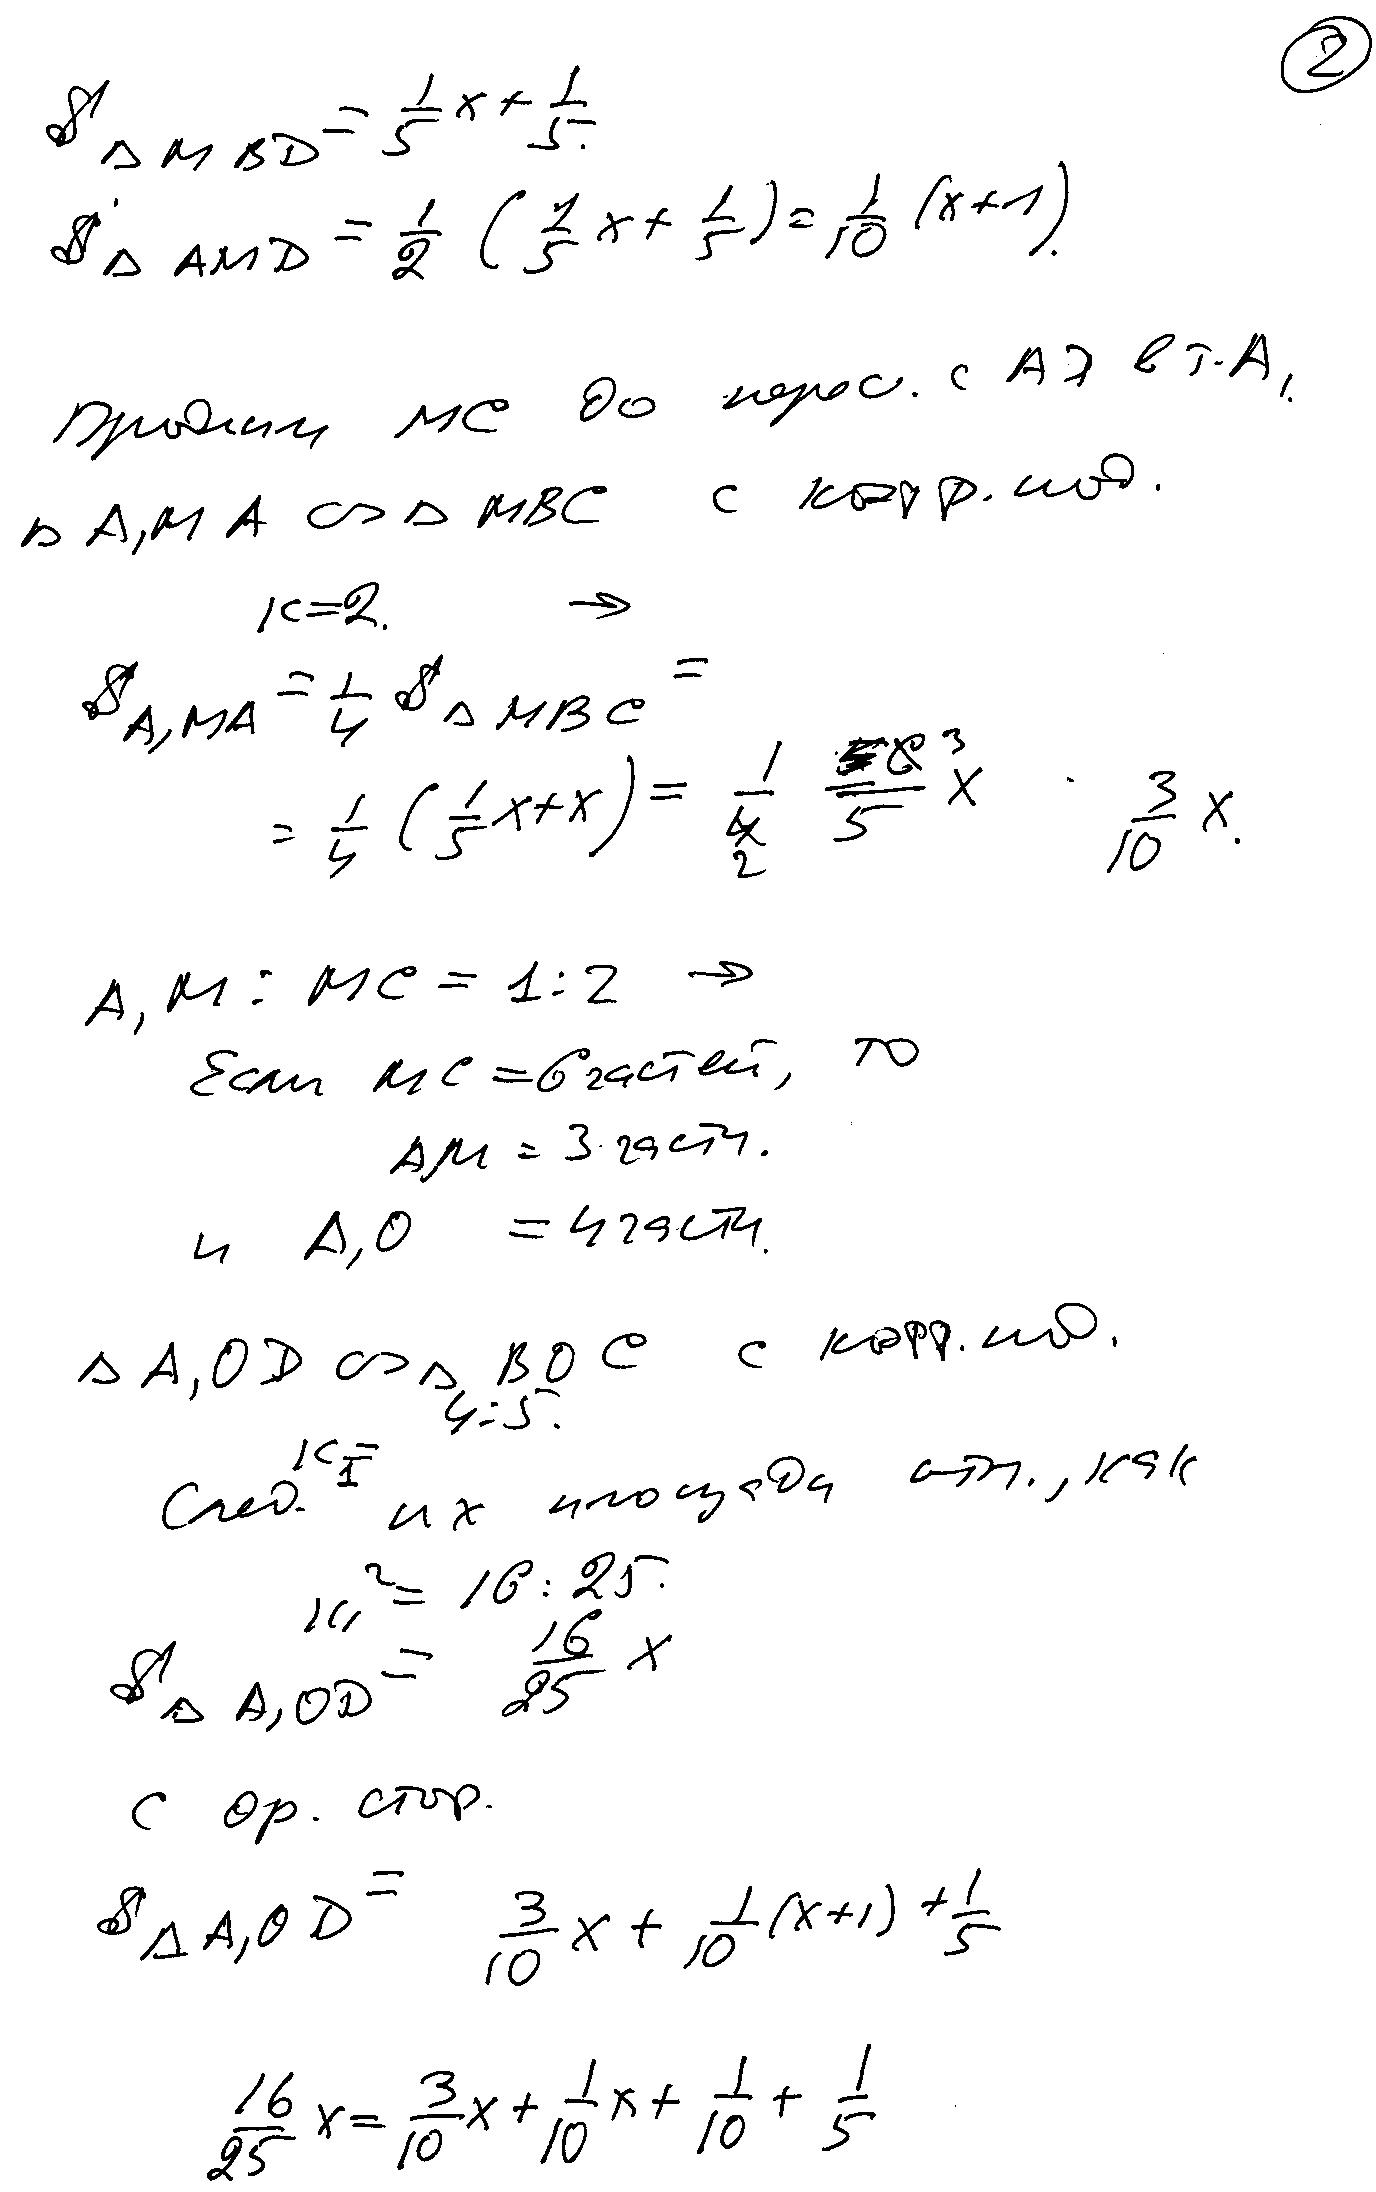 2
S△MBD = 1/5 x + 1/5.
S△AMD = 1/2 (1/5 x + 1/5) = 1/10 (x+1).
Продлим MC до перес. с AD в т. A₁
△ A₁MA ∾ △ MBC с коэфф. под.
K=2. →
S A₁MA = 1/4 S△MBC =
= 1/4 (1/5 x + x) = 1/2 3/5 x · 3/10 x.
A₁M : MC = 1:2 →
Если MC = 6 частей, то
A₁M = 3 части.
и A₁O = 4 части.
△ A₁OD ∾ △ BOC с коэфф. под.
K₁ = 4:5.
След. их площади отн., как
K₁² = 16:25.
S△A₁OD = 16/25 x
С др. стор.
S△A₁OD = 3/10 x + 1/10 (x+1) + 1/5
16/25 x = 3/10 x + 1/10 x + 1/10 + 1/5